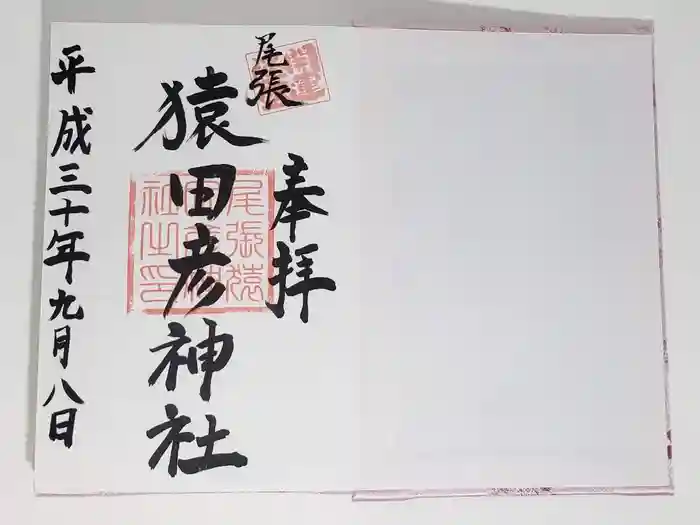 尾張
奉拝
猿田彦神社
尾張猿
田彦神
社之印
平成三十年九月八日